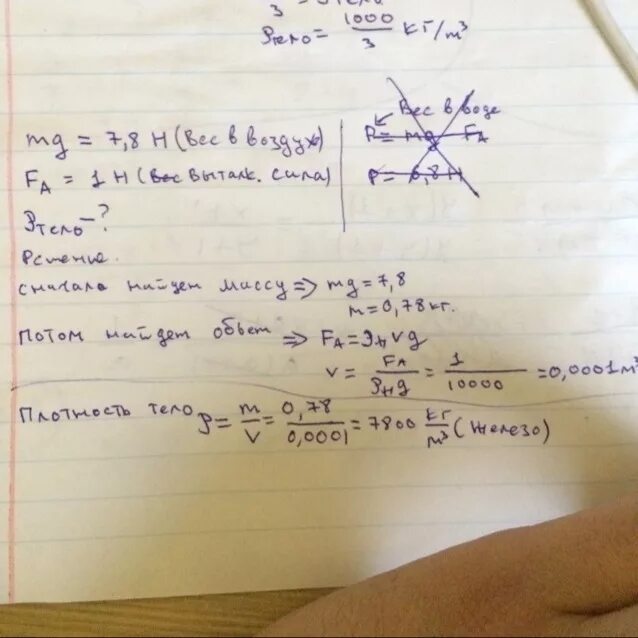 3
ρтело = 1000/3 кг/м³
mg = 7,8 Н (вес в воздух)
F_A = 1 Н (вес выталк. сила)
ρтело - ?
Вес в воде
P = mg F_A
P = 6,8 Н
Решение.
сначала найдем массу => mg = 7,8
m = 0,78 кг.
Потом найдет обьем => F_A = ρ_н v g
v = F_A/ρ_н g = 1/10000 = 0,0001 м³
Плотность тело ρ = m/v = 0,78/0,0001 = 7800 кг/м³ (железо)